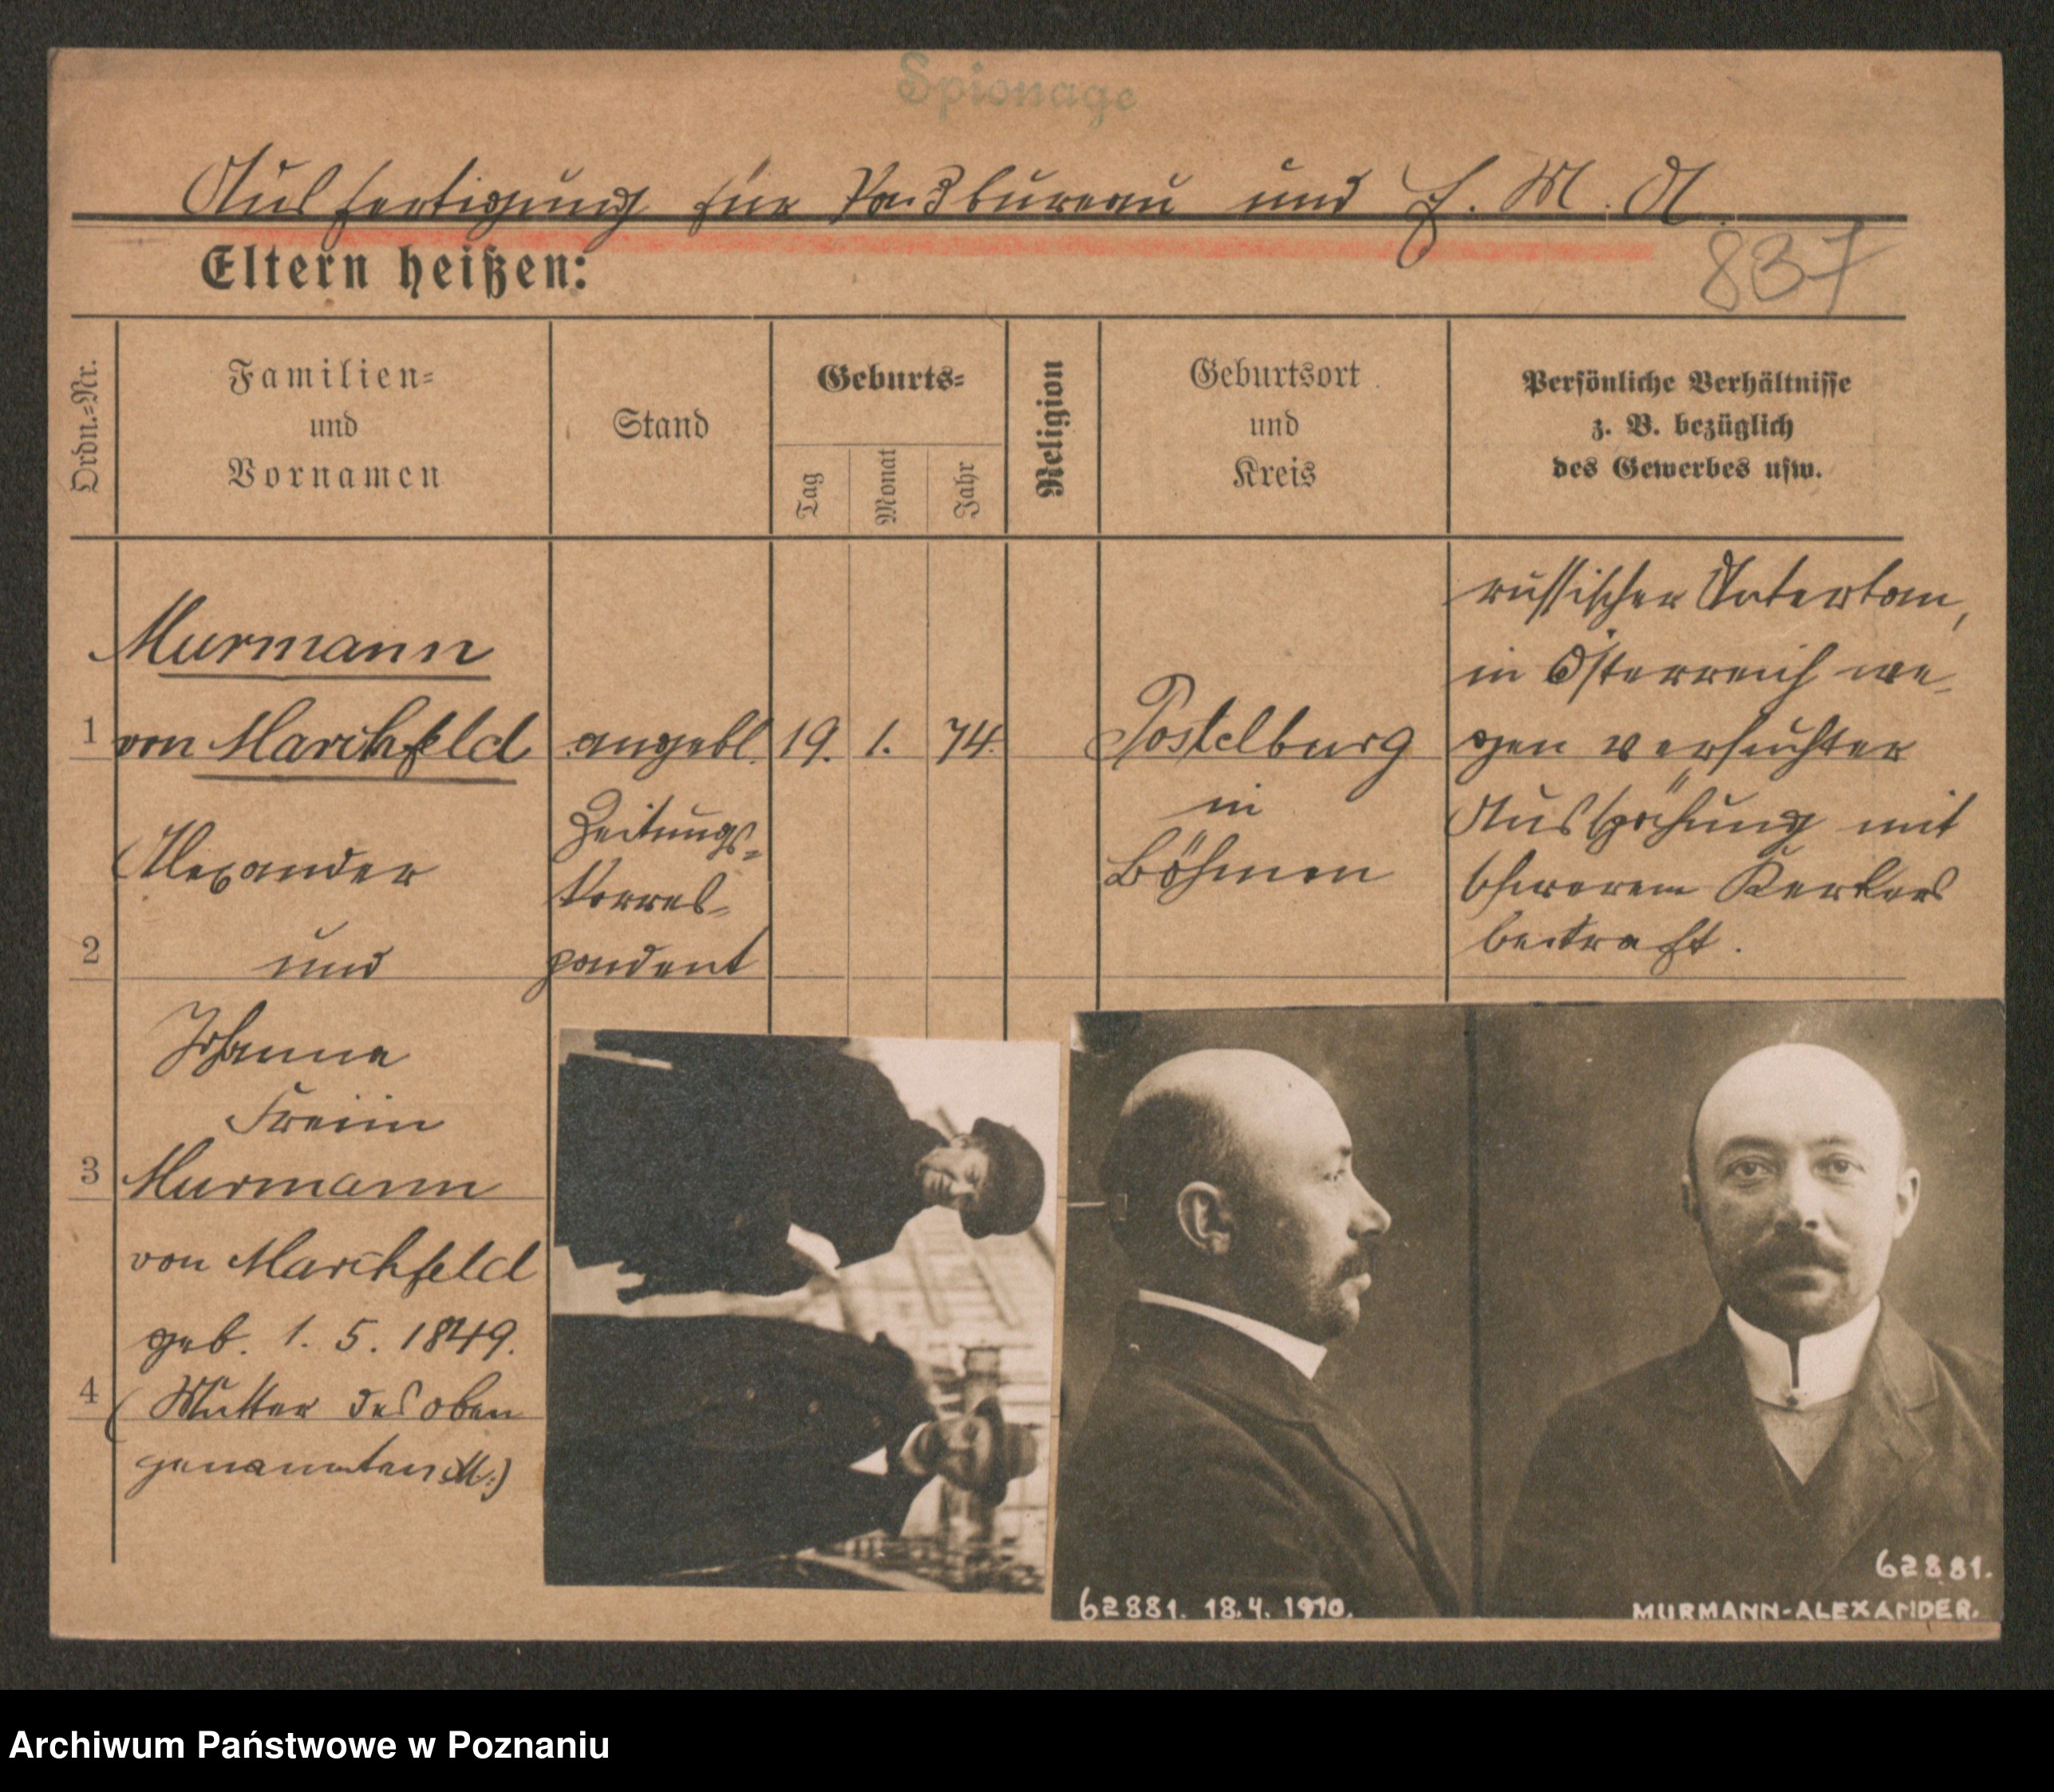 Spionage
Ausfertigung für Passbureau und E. M. A.
837
Eltern heißen:
Ordn.=Nr.
Familien=
und
Vornamen
Stand
Geburts=
Tag
Monat
Jahr
Religion
Geburtsort
und
Kreis
Persönliche Verhältnisse
z. B. bezüglich
des Gewerbes usw.
1
Murmann
von Marchfeld
Alexander
2
und
Johanna
Freiin
3
Murmann
von Marchfeld
geb. 1. 5. 1849.
4
(Mutter des oben
genannten M.)
angebl.
Zeitungs=
Korres=
pondent
19. 1. 74.
Postelburg
in
Böhmen
russischer Untertan,
in Österreich we-
gen versuchter
Ausspähung mit
schwerem Kerker
bestraft.
62881. 18.4. 1910.
62881.
MURMANN-ALEXANDER.
Archiwum Państwowe w Poznaniu